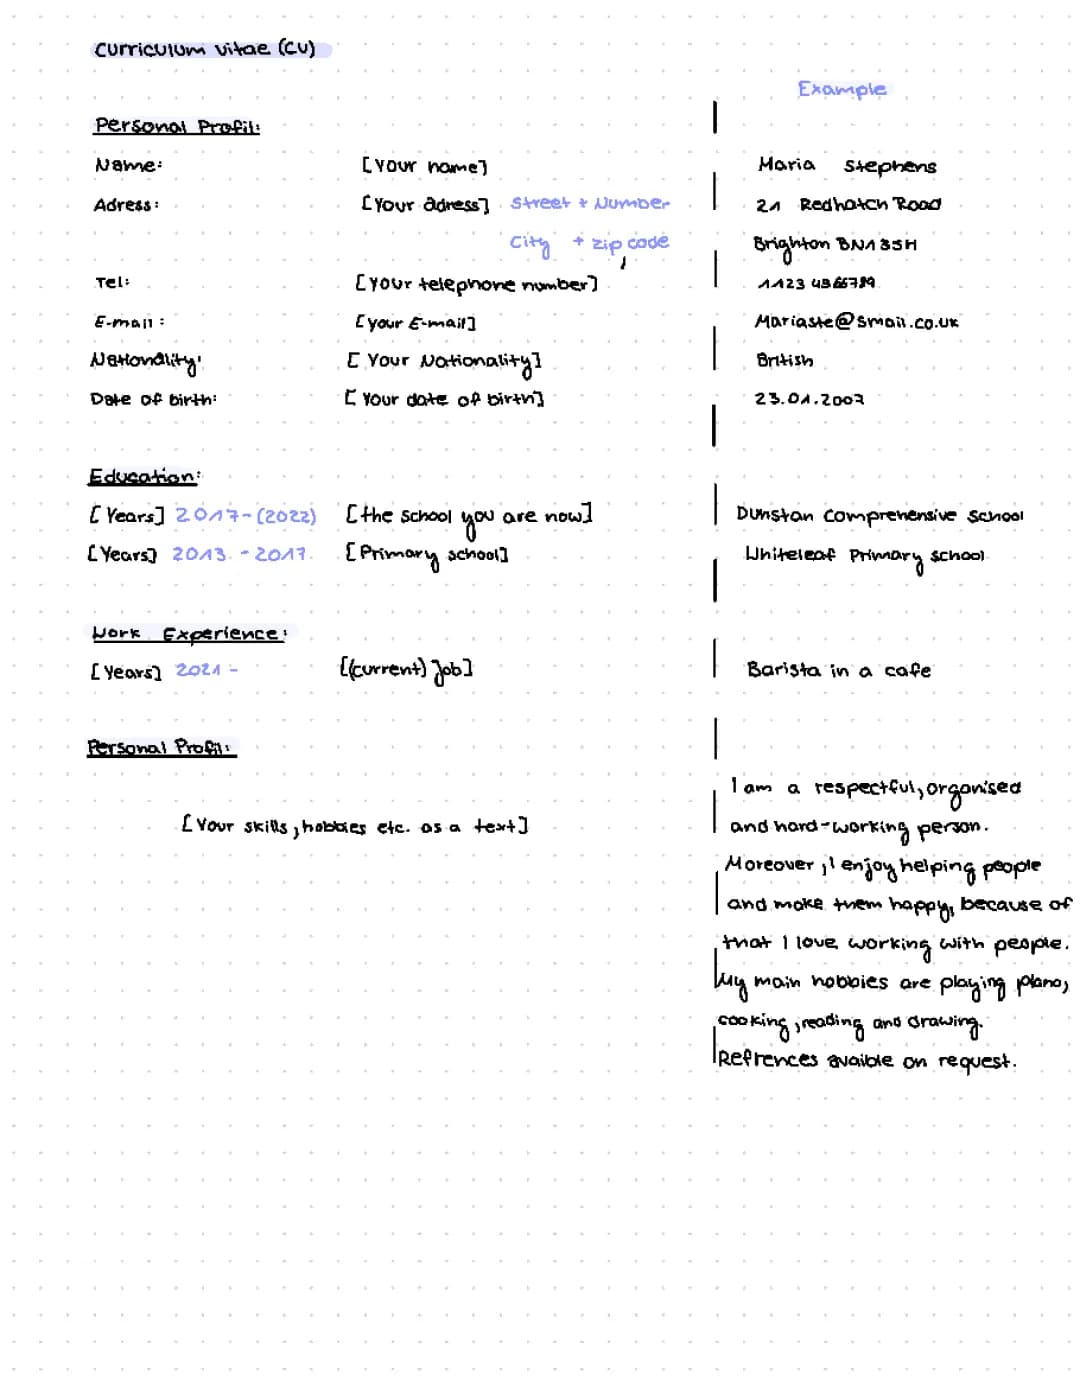 Curriculum vitae (CV)
Example
Personal Profil:
Name: [Your name] Maria Stephens
Adress: [Your adress] Street + Number 21 Redhatch Road
City + zip code Brighton BN1 3SH
Tel: [Your telephone number]
E-mail: [your E-mail] Mariaste@smail.co.uk
Nationality: [Your Nationality] British
Date of birth: [Your date of birth] 23.01.2007
Education:
[Years] 2017-(2022) [the school you are now] Dunstan Comprehensive School
[Years] 2013 - 2017 [Primary school] Whiteleaf Primary School
Work Experience:
[Years] 2021 - [(current) Job] Barista in a cafe
Personal Profil:
I am a respectful, organised
[Your skills, hobbies etc. as a text] and hard-working person.
Moreover, I enjoy helping people
and make them happy, because of
that I love working with people.
My main hobbies are playing piano,
cooking, reading and drawing.
Refrences avaible on request.